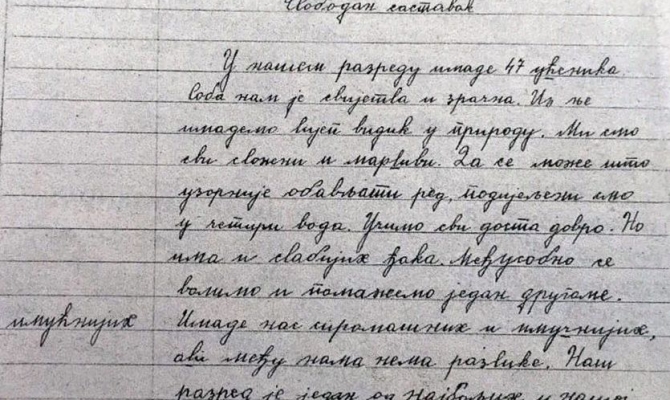 Слободан саставак
У нашем разреду имаде 47 ућеника
Соба нам је свијетла и зрачна. Из ње
имадемо лијеп видик у природу. Ми смо
сви сложни и марљиви. Да се може што
узорније обављати ред, подијељени смо
у четири вода. Учимо сви доста добро. Но
има и слабијих ђака. Међусобно се
волимо и помажемо један другоме.
имућнијих Имаде нас сиромашних и имучнијих,
али међу нама нема разлике. Наш
разред је један од најбољих у нашој